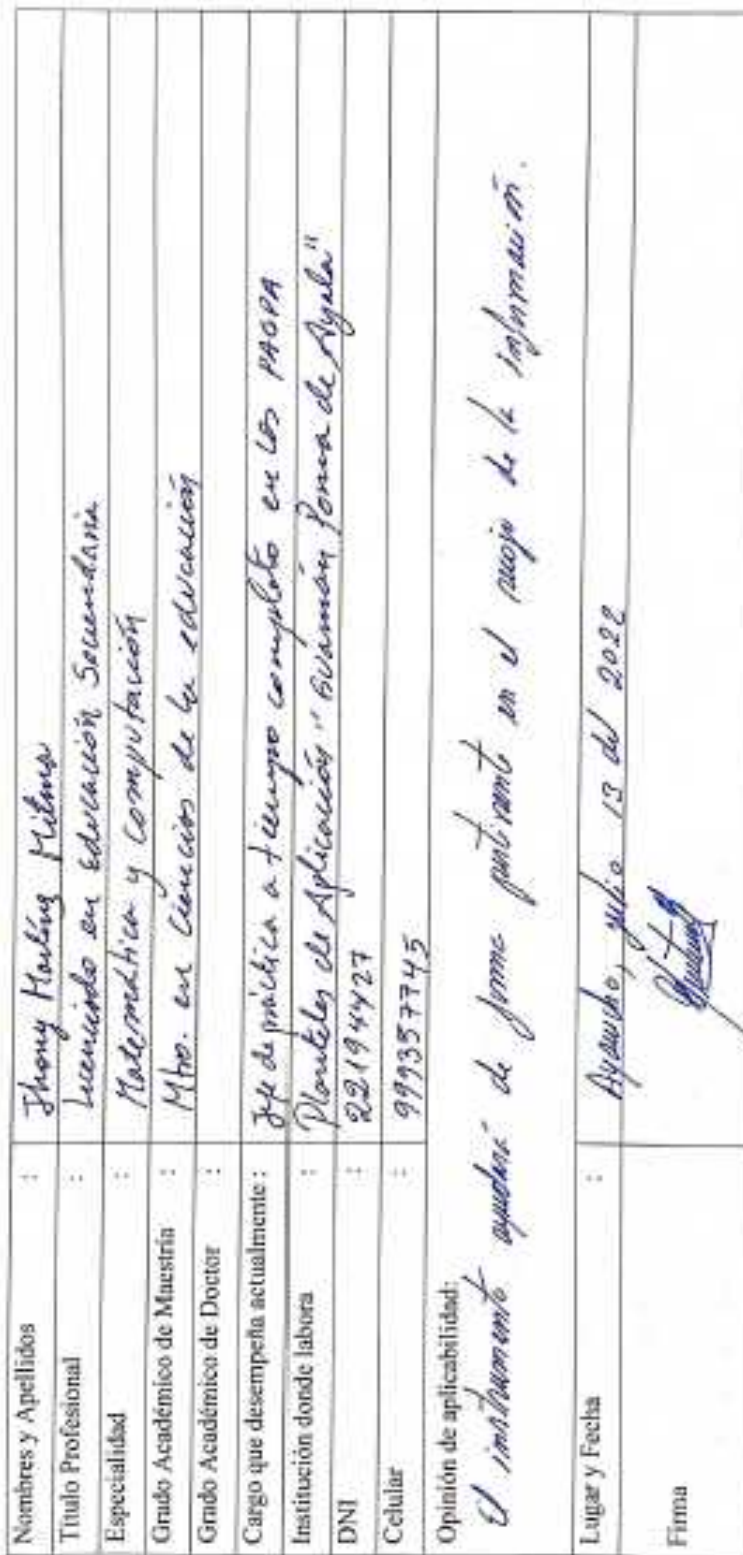 Nombres y Apellidos : Jhony Martínez Milma
Título Profesional : Licenciado en Educación Secundaria
Especialidad : Matemática y computación
Grado Académico de Maestría : Mtro. en Ciencias de la educación
Grado Académico de Doctor :
Cargo que desempeña actualmente : Jefe de práctica a tiempo completo en los PAGPA
Institución donde labora : Planteles de Aplicación "Guamán Poma de Ayala"
DNI : 22194427
Celular : 999357745
Opinión de aplicabilidad:
El instrumento ayudará de forma pertinente en el recojo de la información.
Lugar y Fecha : Ayacucho, julio 13 del 2022
Firma